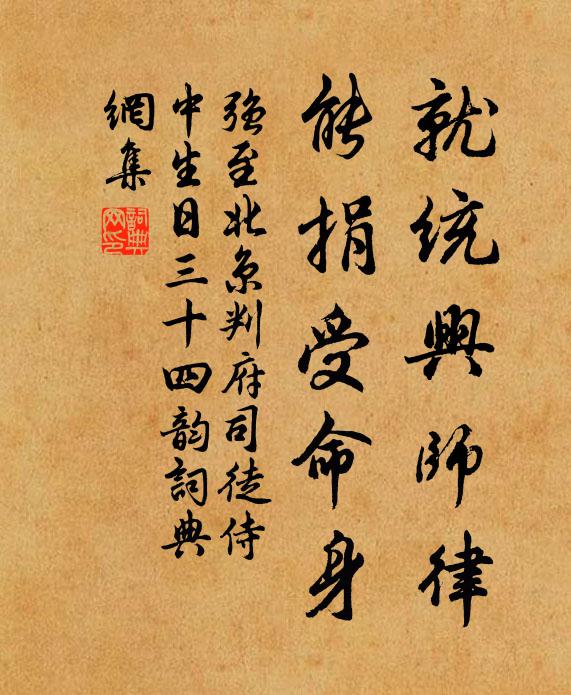 就統興師律
能捐受命身
強至北京判府司徒侍
中生日三十四韵詞典
網集
詞典網印